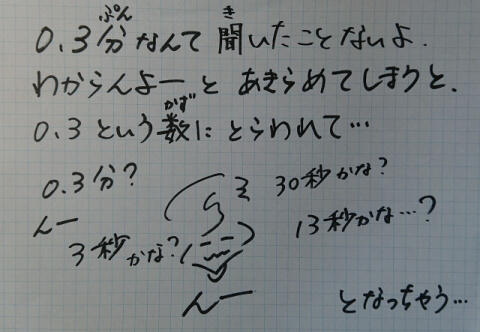 0.3分なんて 聞いたことないよ.
ぷん
き
わからんよー と あきらめてしまうと.
0.3 という数に とらわれて…
かず
0.3分?
30秒かな?
んー
3秒かな?
13秒かな…?
んー
となっちゃう…